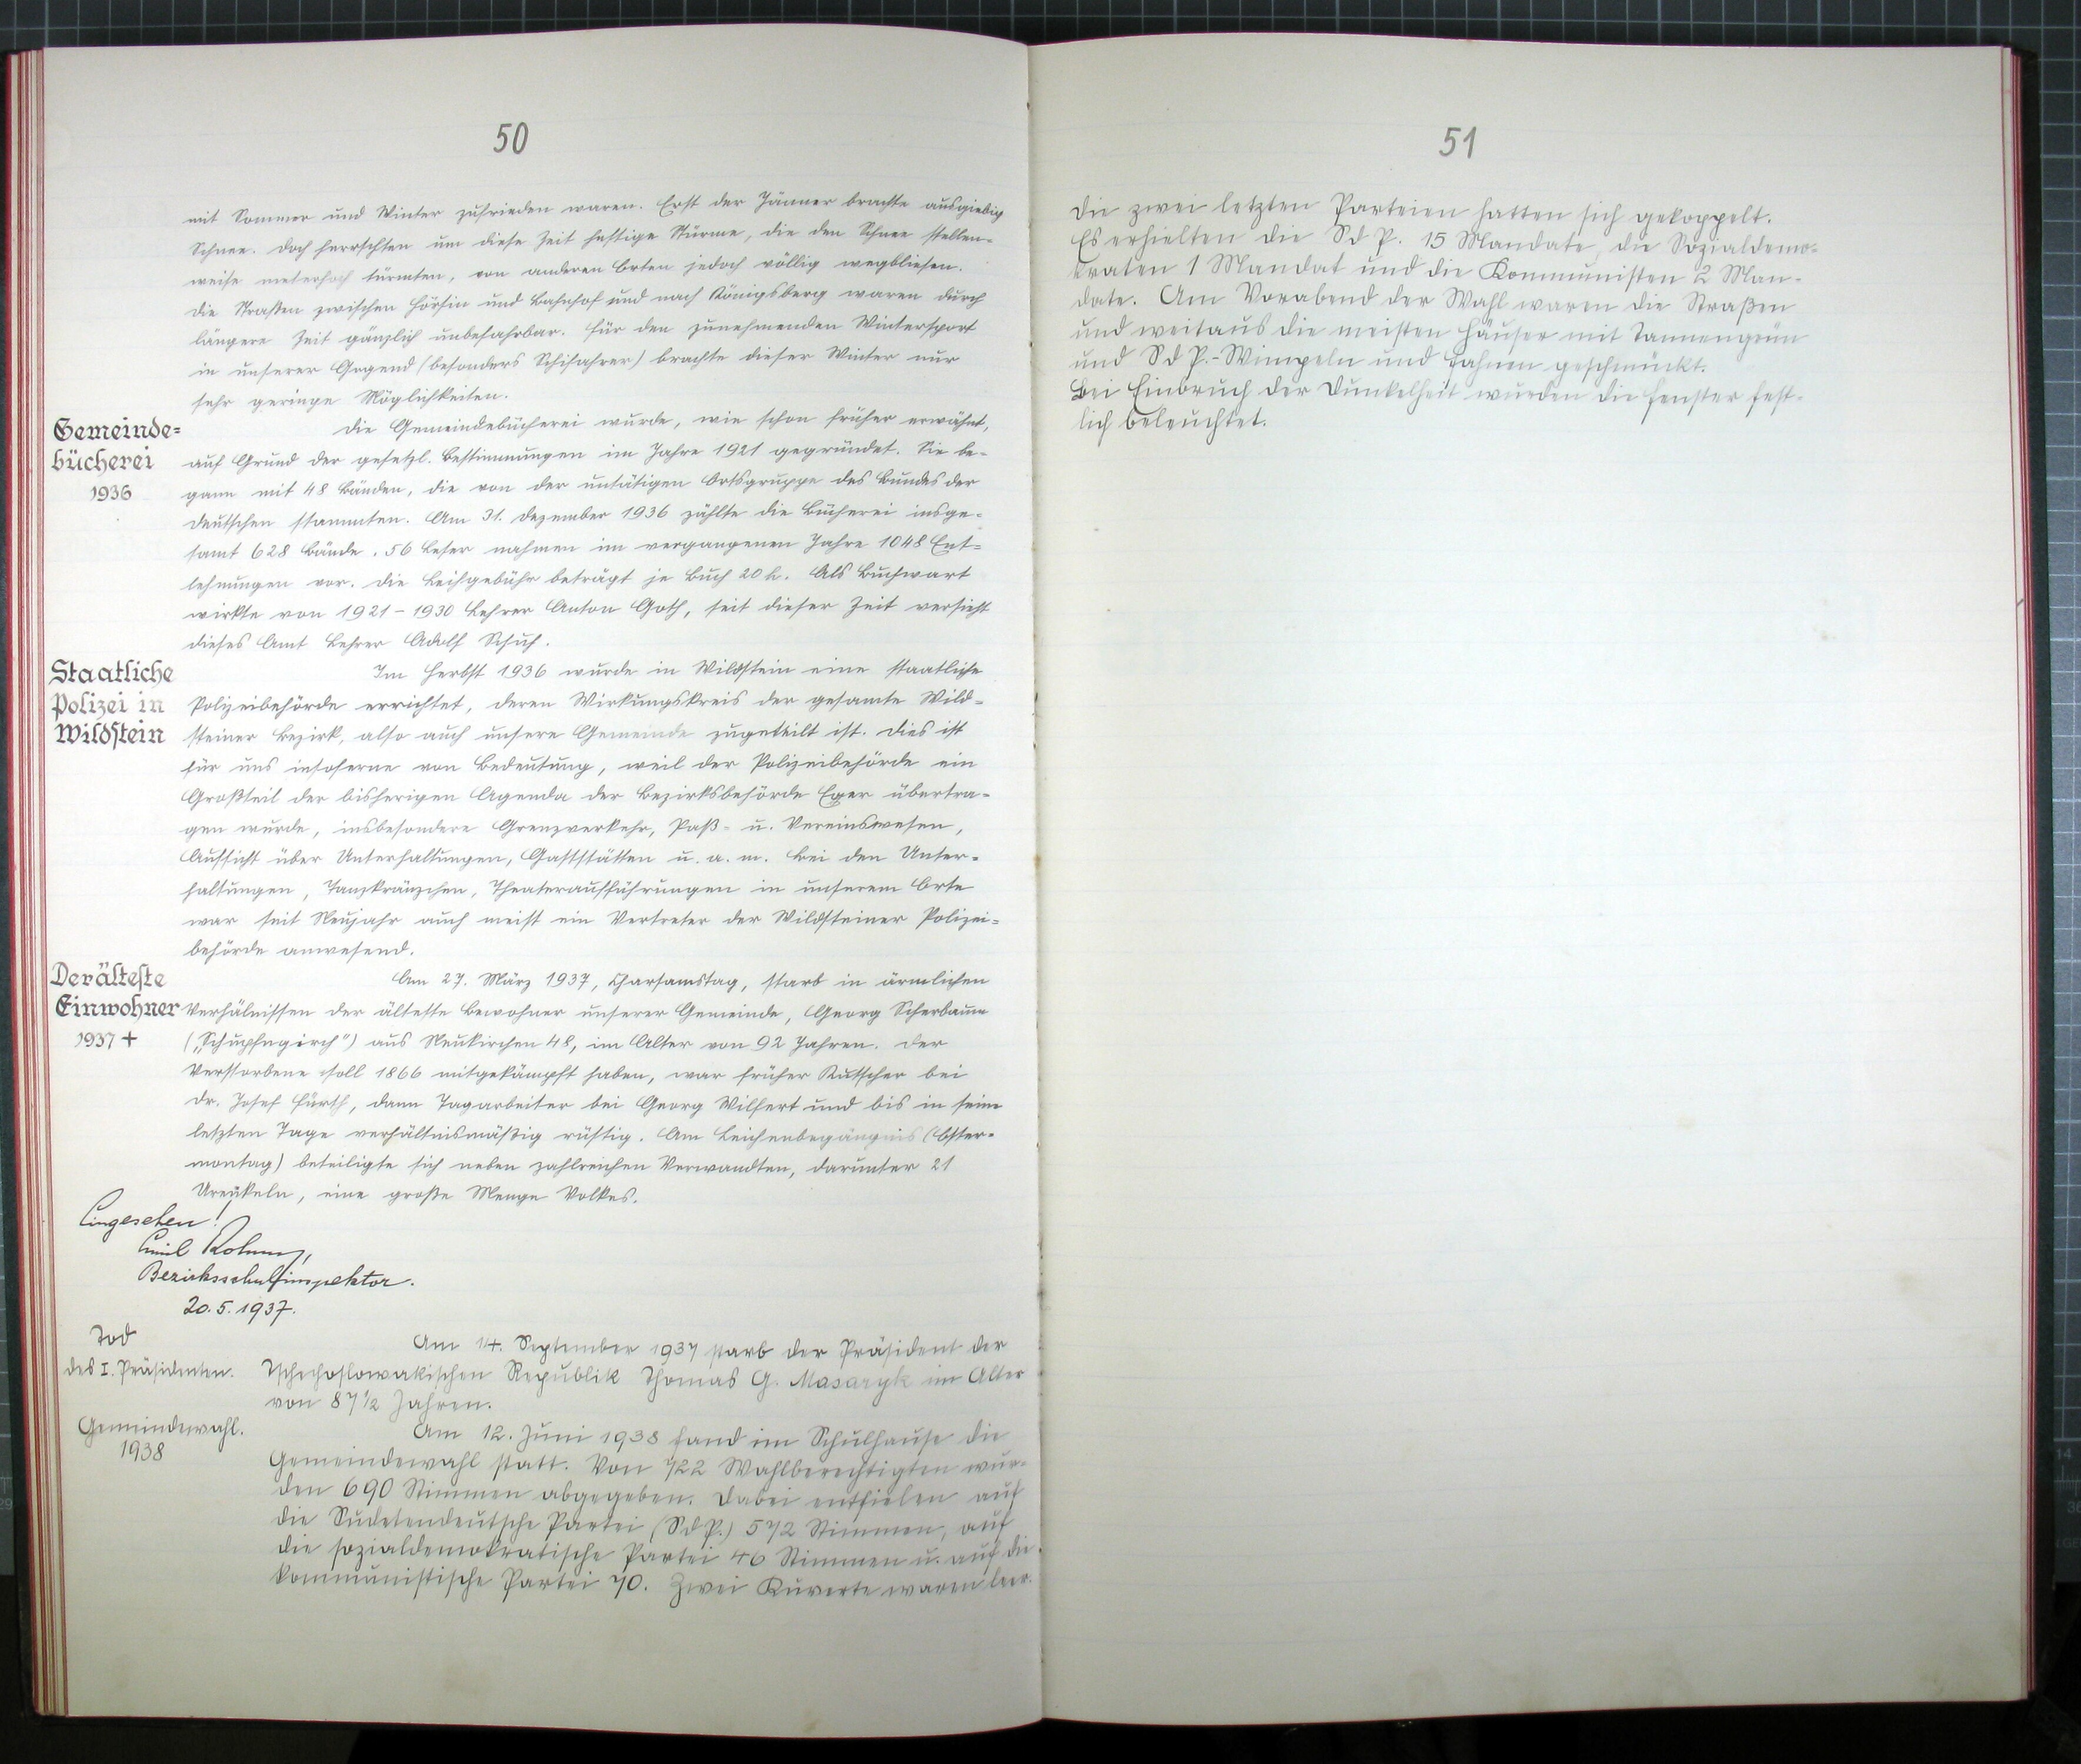 50
mit Sommer und Winter zufrieden waren. Erst der Jänner brachte ausgiebig
Schnee. Doch herrschten um diese Zeit heftige Stürme, die den Schnee stellen-
weise meterhoch türmten, von anderen Orten jedoch völlig wegbliesen.
Die Straßen zwischen Hörsin und Bahnhof und nach Königsberg waren durch
längere Zeit gänzlich unbefahrbar. Für den zunehmenden Wintersport
in unserer Gegend (besonders Schifahrer) brachte dieser Winter nur
sehr geringe Möglichkeiten.
Gemeinde-
bücherei
1936
Die Gemeindebücherei wurde, wie schon früher erwähnt,
auf Grund der gesetzl. Bestimmungen im Jahre 1921 gegründet. Sie be-
gann mit 48 Bänden, die von der untätigen Ortsgruppe des Bundes der
Deutschen stammten. Am 31. Dezember 1936 zählte die Bücherei insge-
samt 628 Bände. 56 Leser nahmen im vergangenen Jahre 1048 Ent-
lehnungen vor. Die Leihgebühr beträgt je Buch 20 h. Als Buchwart
wirkte von 1921-1930 Lehrer Anton Goth, seit dieser Zeit versieht
dieses Amt Lehrer Adolf Schuh.
Staatliche
Polizei in
Wildstein
Im Herbst 1936 wurde in Wildstein eine staatliche
Polizeibehörde errichtet, deren Wirkungskreis der gesamte Wild-
steiner Bezirk, also auch unsere Gemeinde zugeteilt ist. Dies ist
für uns insoferne von Bedeutung, weil der Polizeibehörde ein
Großteil der bisherigen Agenda der Bezirksbehörde Eger übertra-
gen wurde, insbesondere Grenzverkehr, Paß- u. Vereinswesen,
Aufsicht über Unterhaltungen, Gaststätten u. a. m. Bei den Unter-
haltungen, Tanzkränzchen, Theateraufführungen in unserem Orte
war seit Neujahr auch meist ein Vertreter der Wildsteiner Polizei-
behörde anwesend.
Der älteste
Einwohner
1937 +
Am 27. März 1937, Charsamstag, starb in ärmlichen
Verhälnissen der älteste Bewohner unserer Gemeinde, Georg Scherbaum
("Schupfngirch") aus Neukirchen 48, im Alter von 92 Jahren. Der
Verstorbene soll 1866 mitgekämpft haben, war früher Kutscher bei
Dr. Josef Fürth, dann Tagarbeiter bei Georg Wilfert und bis in seine
letzten Tage verhältnismäßig rüstig. Am Leichenbegängnis (Oster-
montag) beteiligte sich neben zahlreichen Verwandten, darunter 21
Urenkeln, eine große Menge Volkes.
Eingesehen!
Emil
Bezirksschulinspektor.
20.5.1937.
Tod
des I. Präsidenten.
Am 14. September 1937 starb der Präsident der
Tschechoslowakischen Republik Thomas G. Masaryk im Alter
von 87 1/2 Jahren.
Gemeindewahl.
1938
Am 12. Juni 1938 fand im Schulhause die
Gemeindewahl statt. Von 722 Wahlberechtigten wur-
den 690 Stimmen abgegeben. Dabei entfielen auf
die Sudetendeutsche Partei (SdP.) 572 Stimmen, auf
die sozialdemokratische Partei 46 Stimmen u. auf die
kommunistische Partei 70. Zwei Kuverte waren leer.
51
Die zwei letzten Parteien hatten sich gekoppelt.
Es erhielten die SdP. 15 Mandate, die Sozialdemo-
kraten 1 Mandat und die Kommunisten 2 Man-
date. Am Vorabend der Wahl waren die Straßen
und weitaus die meisten Häuser mit Tannengrün
und SdP.-Wimpeln und Fahnen geschmückt.
Bei Einbruch der Dunkelheit wurden die Fenster fest-
lich beleuchtet.